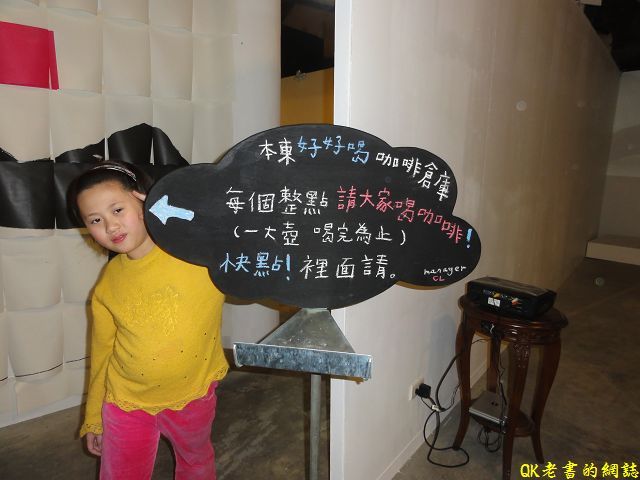 本東好好喝咖啡倉庫
每個整點請大家喝咖啡!
(一大壺 喝完為止)
快點!裡面請。
manager
CL
QK老書的網誌